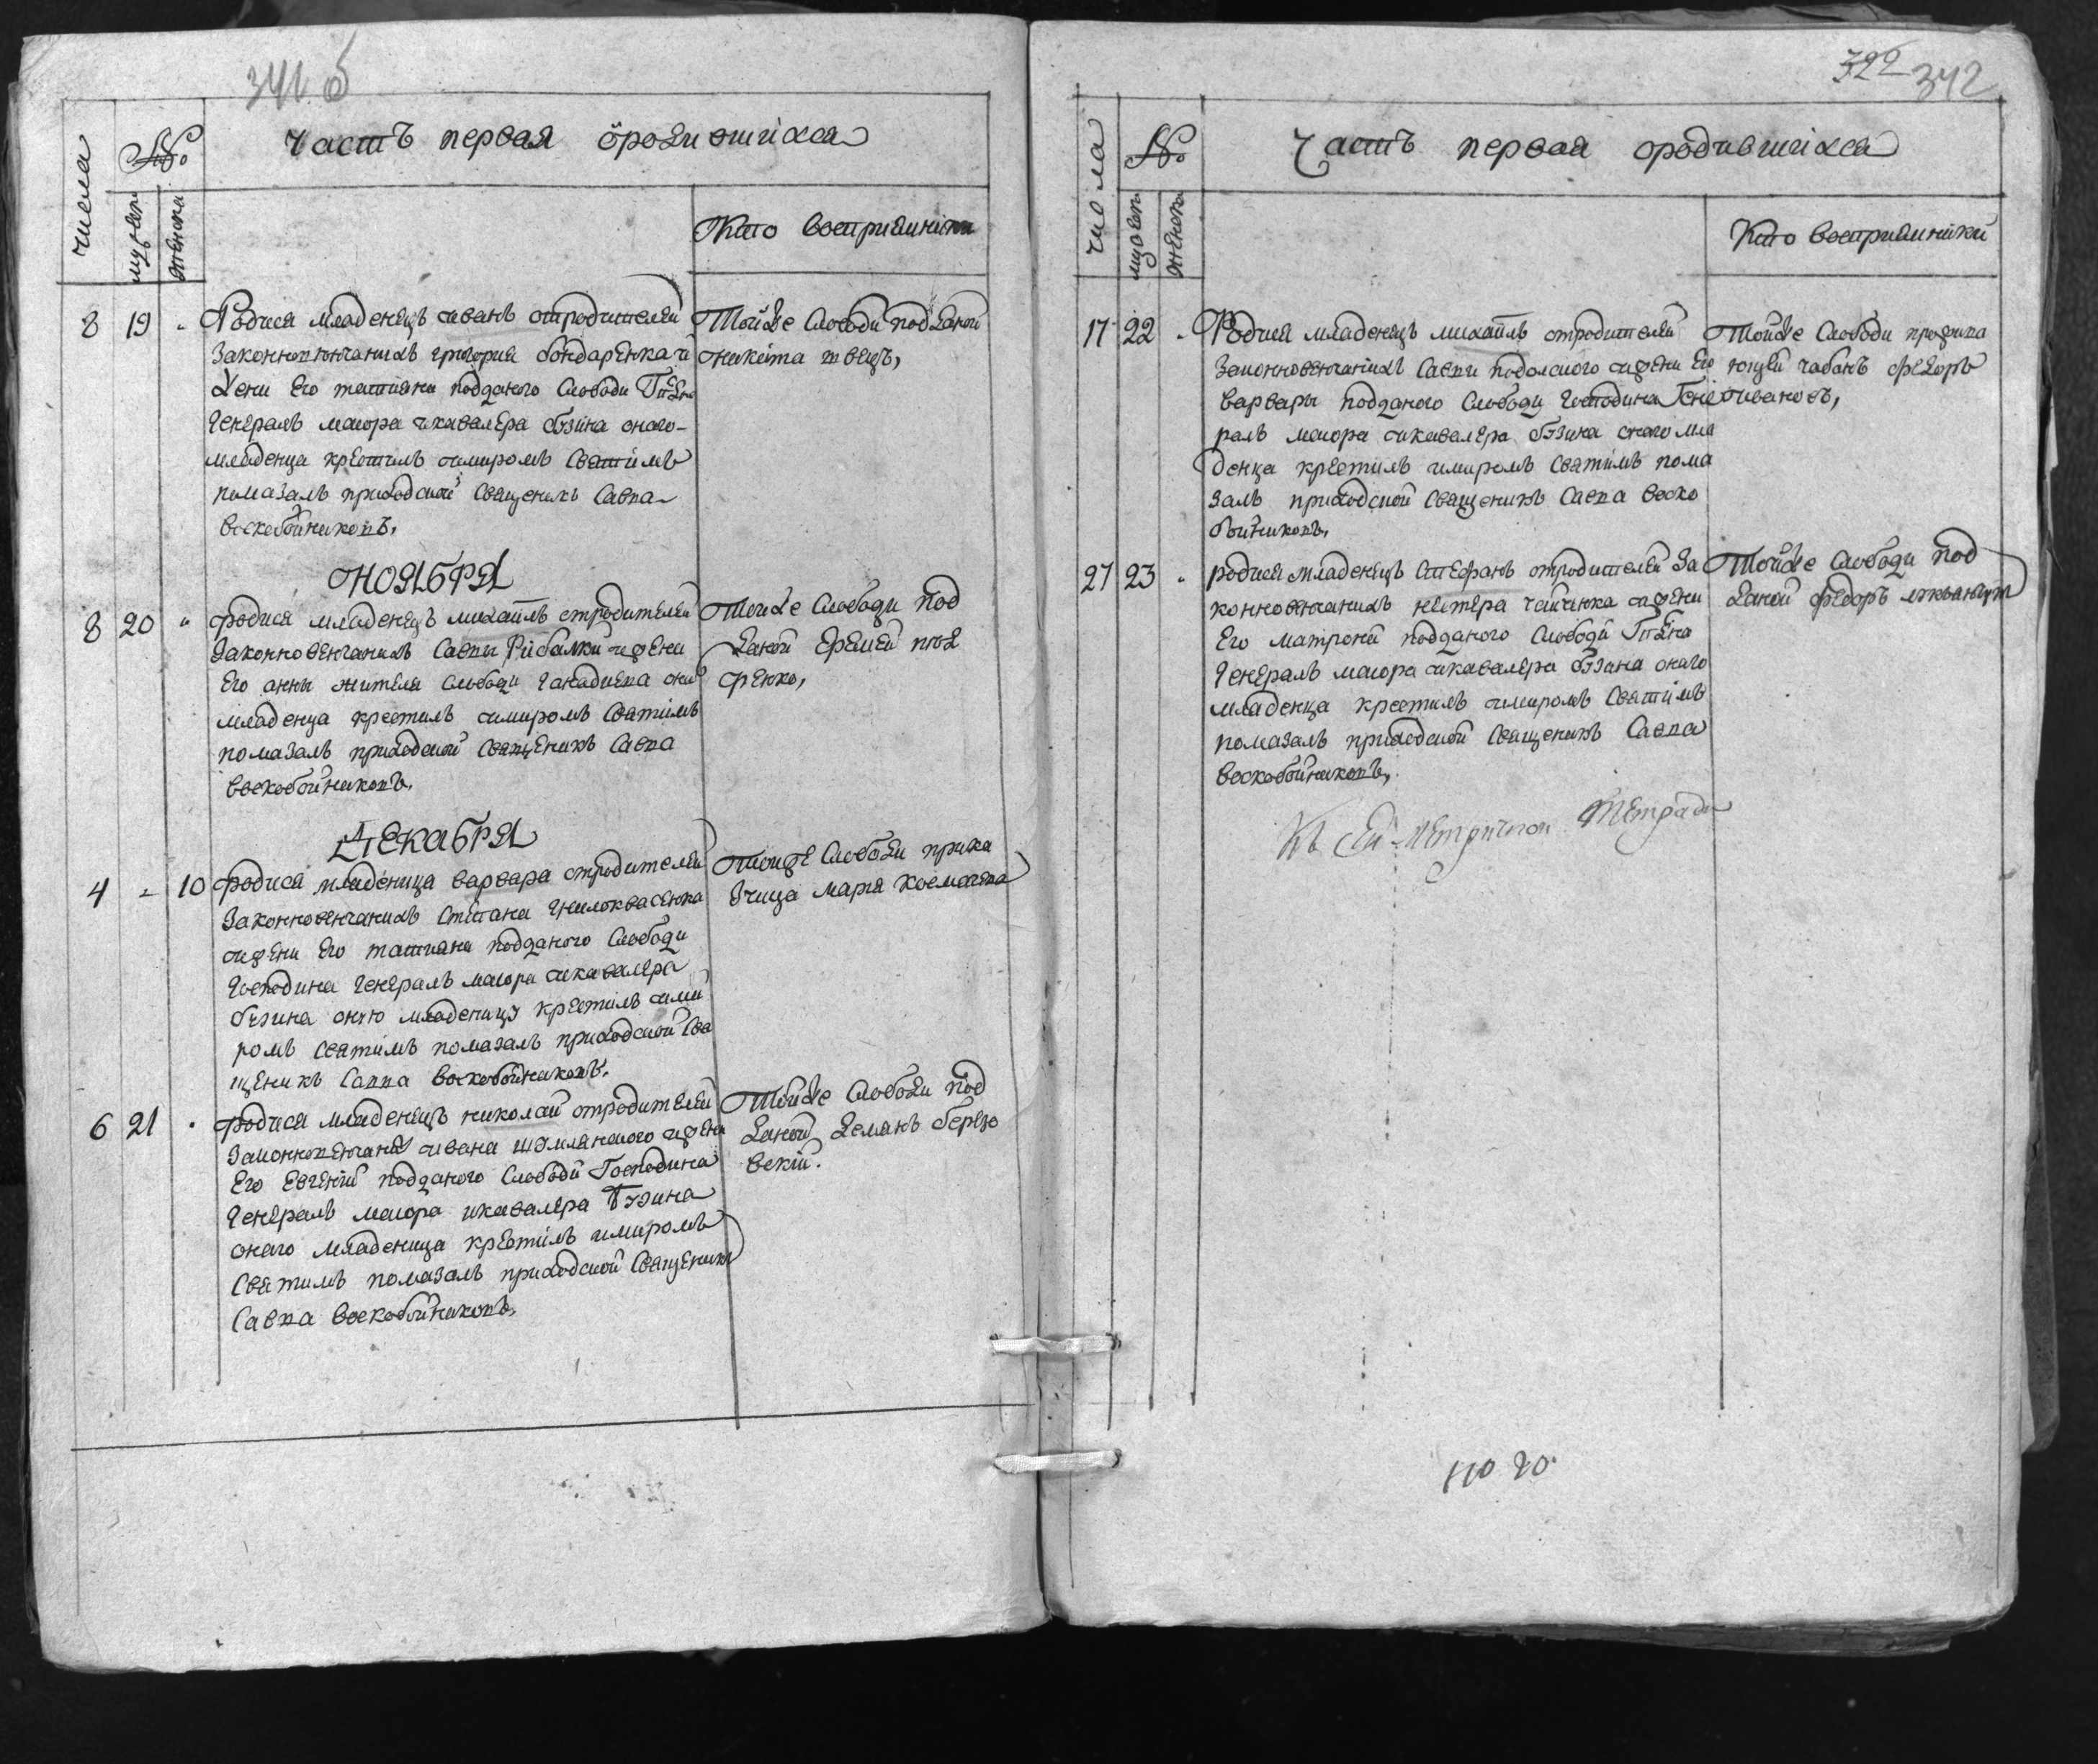 341 б
Часть первая ородившихся
числа
№
мужеск
женска
Кто восприемники
8 19 Родися младенецъ иванъ отродителей
законновенчанихъ григория бондаренка и
жени Его татияни подданого Слободи
Генералъ маиора икавалера бузина оного
младенца крестилъ имиромъ Святимъ
помазалъ приходской Священикъ Савва
воскобойниковъ,
Тойже Слободи подданой
никита швецъ,
НОЯБРЯ
8 20 родися младенецъ михаилъ отродителей
законновенчанихъ Савви Рибалки ижени
Его анни жителя Слободи
младенца крестилъ имиромъ Святимъ
помазалъ приходской Священикъ Савва
воскобойниковъ,
Тойже Слободи под
даной Еремей
ДЕКАБРЯ
4 10 родися младеница варвара отродителей
законновенчанихъ Стпана гнилоквасенка
ижени Его татияни подданого Слободи
Господина Генералъ маиора икавалера
бузина оную младеницу крестилъ ими
ромъ Святимъ помазалъ приходской Свя
щеникъ Савва воскобойниковъ.
Тоиже Слободи прика
зчица мария
6 21 родися младенецъ николай отродителей
законновенчаних ивана ижени
Его Евгений подданого Слободи Господина
Генералъ маиора икавалера Бузина
онаго младеница крестилъ имиромъ
Святимъ помазалъ приходской Священик
Савва воскобойниковъ,
Тойже Слободи под
даной демянъ березо
вский.
322 342
Часть первая ородившихся
числа
№
мужеск
женска
Кто восприемники
17 22 Родися младенецъ михаилъ отродителей
законновенчанихъ Савви подолского ижени Его
варвари подданого Слободи Господина Гене
ралъ маиора икавалера бузина онаго мла
денца крестилъ имиромъ Святимъ пома
залъ приходской Священикъ Савва воско
бойниковъ,
Тойже Слободи прожива
ющей чабанъ федоръ
ивановъ,
27 23 родися младенецъ Стефанъ отродителей за
конновенчанихъ ижени
Его матрони подданого Слободи
Генералъ маиора икавалера бузина онаго
младенца крестилъ имиромъ Святимъ
помазалъ приходской Священикъ Савва
воскобойниковъ,
Тойже Слободи под
даной федоръ
Къ Сей метрической тетради